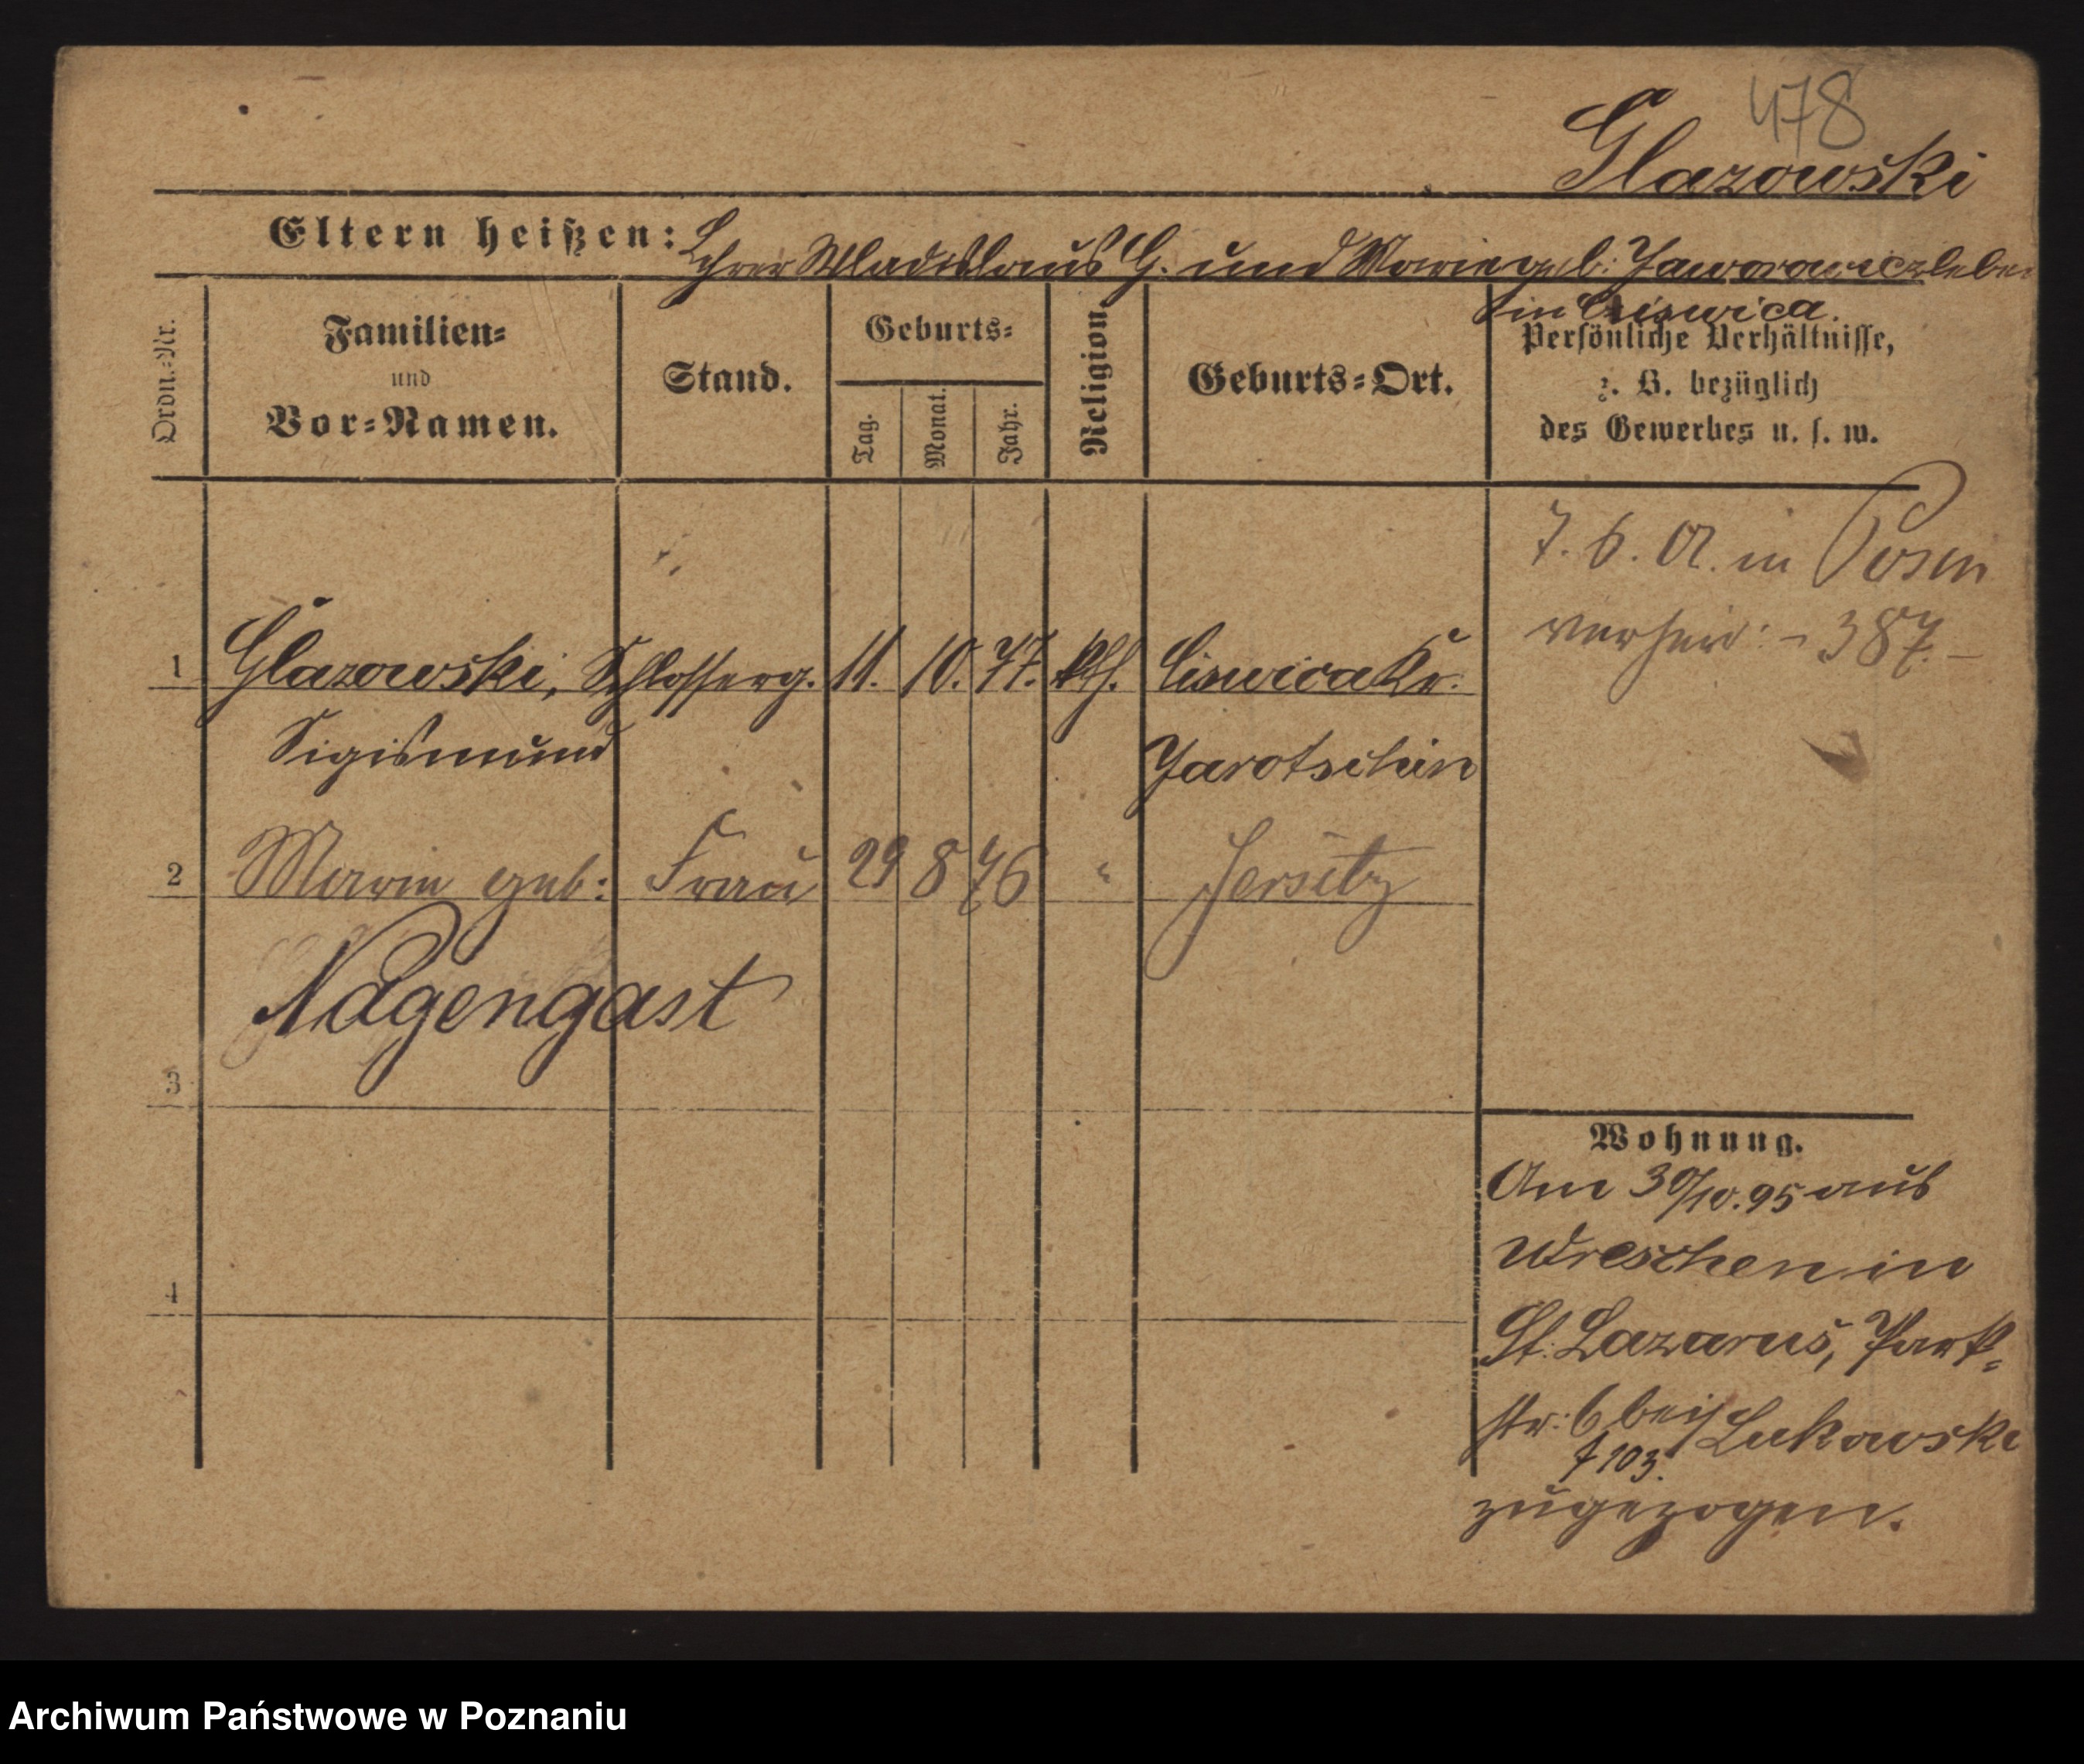 478
Glazowski
Eltern heißen: Lehrer Wladislaus G. und Marie geb: Jaworowicz leben
in Ciswica.
Ordn.-Nr.
Familien-
und
Vor-Namen.
Stand.
Geburts-
Tag.
Monat.
Jahr.
Religion.
Geburts-Ort.
Persönliche Verhältnisse,
z. B. bezüglich
des Gewerbes u. s. w.
7. 6. 01. in Posen
verheir: - 387. -
1 Glazowski, Schlosserg. 11. 10. 77. kth. Ciswica Kr.
Sigismund Jarotschin
2 Marie geb: Frau 29 8 76 " Jersitz
Nagengast
3
4
Wohnung.
Am 30/10. 95 aus
Wreschen in
St. Lazarus, Park-
str: 6 bei Lukowski
103.
zugezogen.
Archiwum Państwowe w Poznaniu